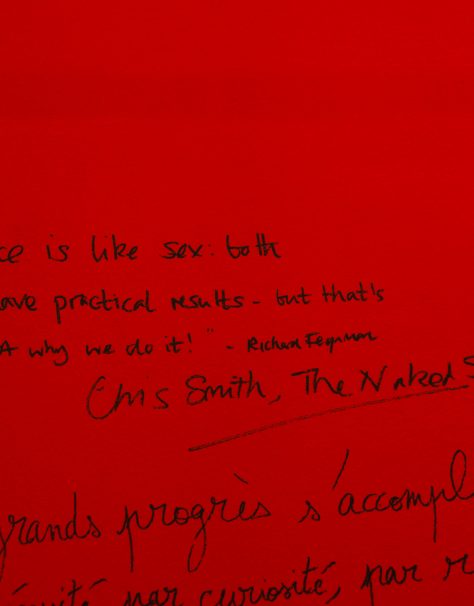 ce is like sex: both
ave practical results - but that's
why we do it!" - Richard Feynman
Chris Smith, The Naked S
grands progrès s'accompl
par curiosité, par r